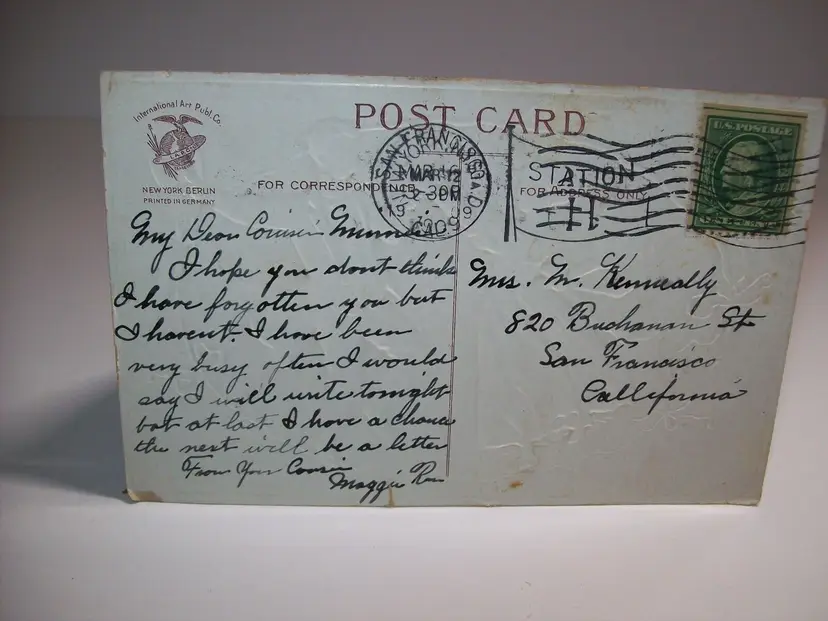 International Art Publ. Co.
NEW YORK BERLIN
PRINTED IN GERMANY
POST CARD
FOR CORRESPONDENCE
FOR ADDRESS ONLY
SAN FRANCISCO
MAR
1909
STATION
U.S. POSTAGE
My Dear Cousin
I hope you dont think
I have forgotten you but
I havent. I have been
very busy often I would
say I will write tonight
but at last I have a chance
the next will be a letter
From Your Cousin
Maggie
Mrs. M. Kenneally
820 Buchanan St
San Francisco
California